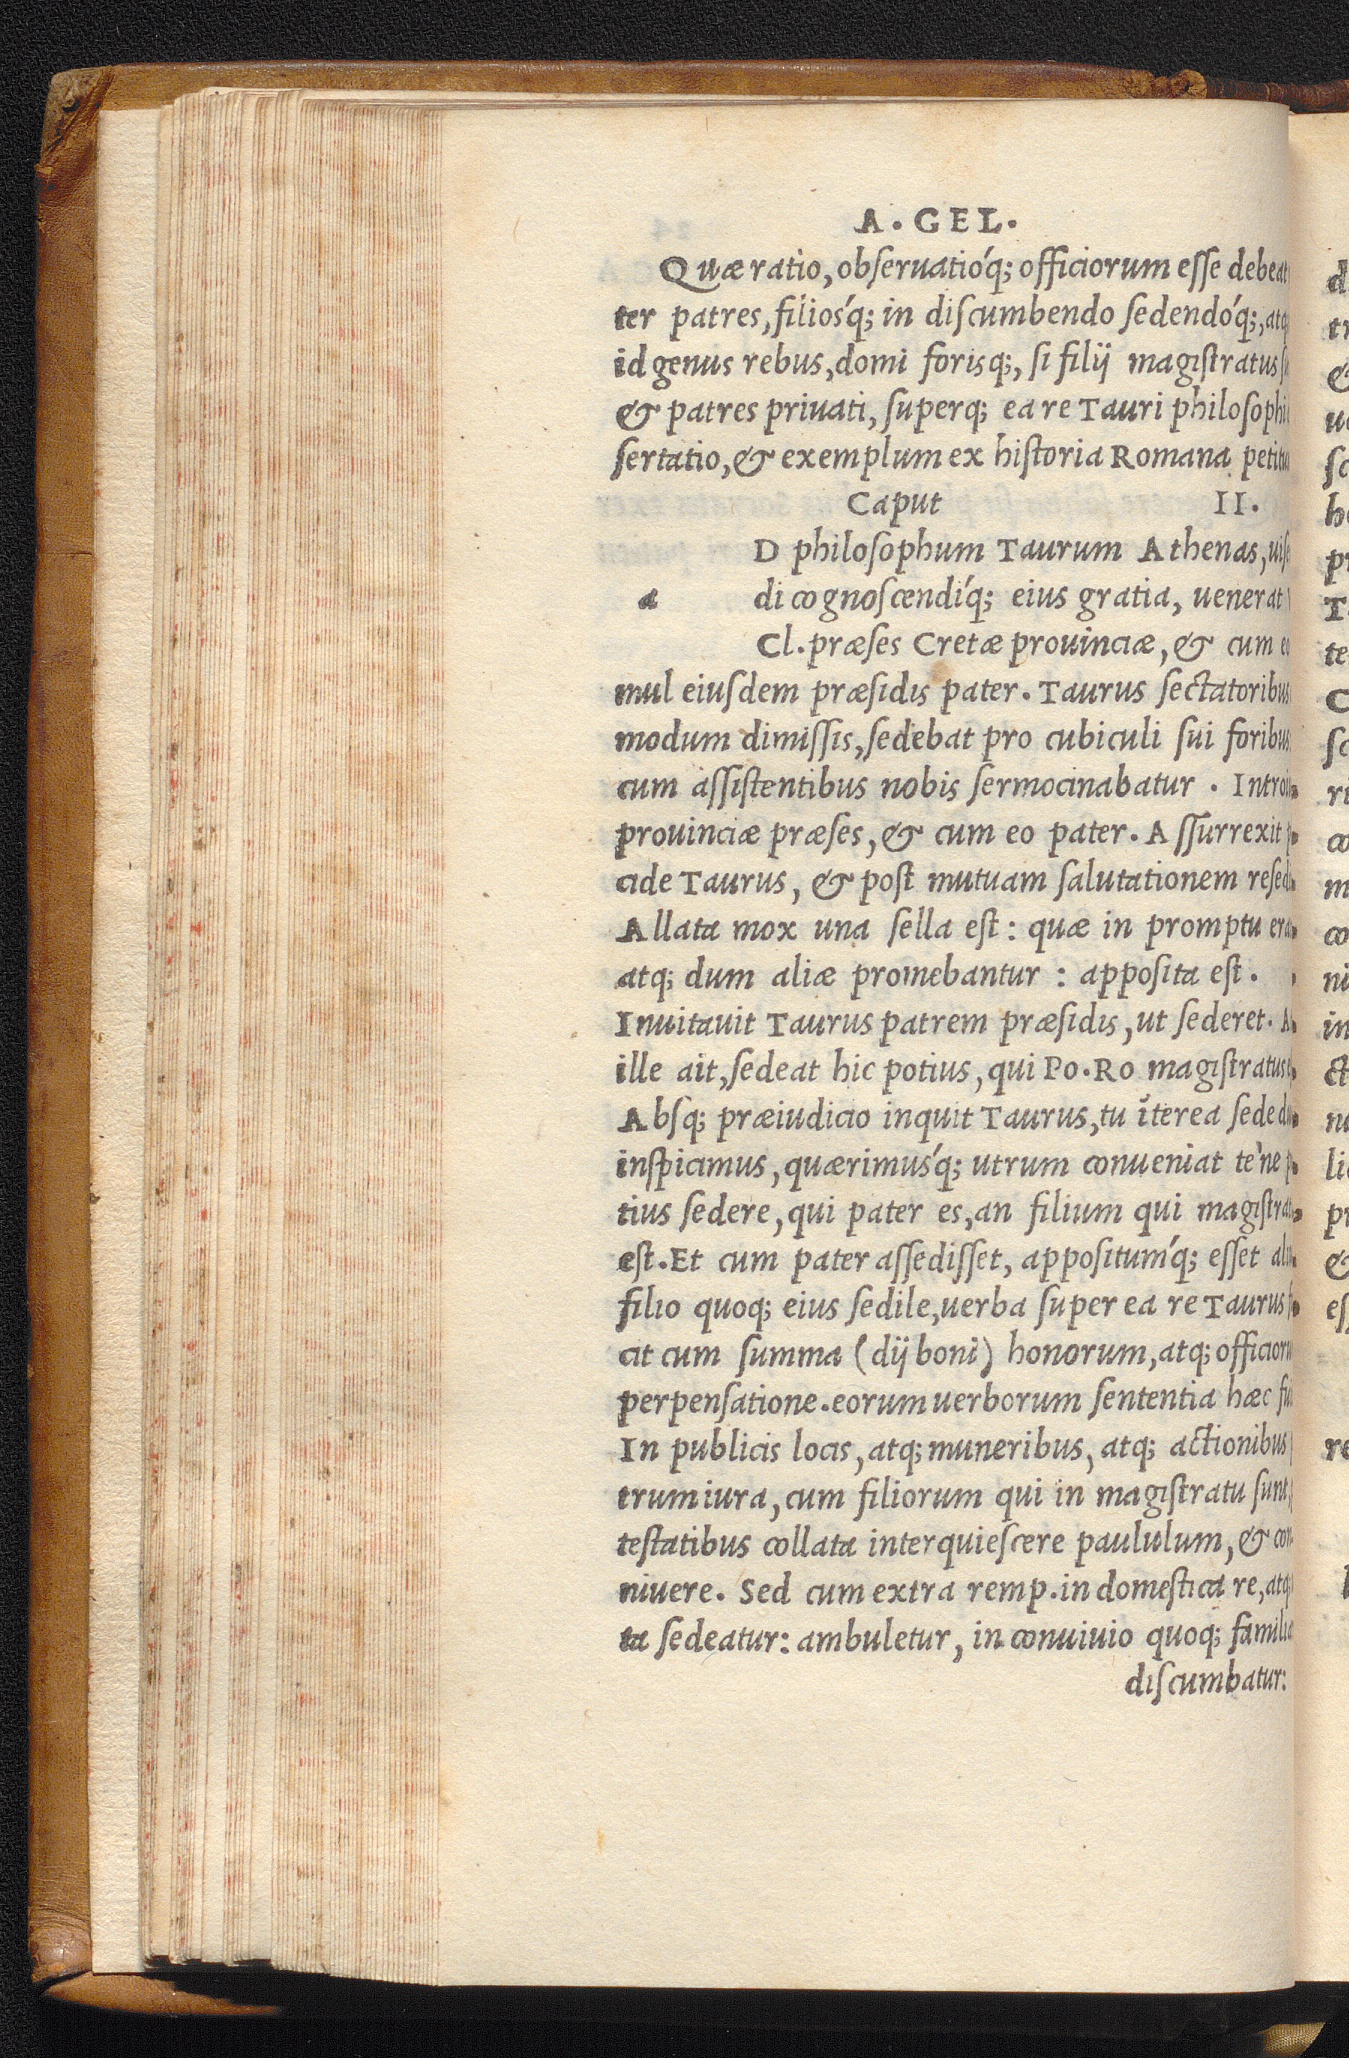 A. GEL.
Quæ ratio, obseruatióq; officiorum esse debeat
ter patres, filiosq́; in discumbendo sedendóq;, atq;
id genus rebus, domi forisq;, si filij magistratus
& patres priuati, superq; ea re Tauri philosophi
sertatio, & exemplum ex historia Romana
Caput II.
D philosophum Taurum Athenas,
a di cognoscendíq; eius gratia, uenerat
Cl. præses Cretæ prouinciæ, & cum
mul eiusdem præsidis pater. Taurus sectatoribus
modum dimissis, sedebat pro cubiculi sui foribus
cum assistentibus nobis sermocinabatur.
prouinciæ præses, & cum eo pater. Assurrexit
cide Taurus, & post mutuam salutationem
Allata mox una sella est: quæ in promptu
atq; dum aliæ promebantur: apposita est.
Inuitauit Taurus patrem præsidis, ut sederet.
ille ait, sedeat hic potius, qui Po. Ro magistratus
Absq; præiudicio inquit Taurus, tu ĩterea sede
inspicimus, quærimusq́; utrum conueniat te'ne
tius sedere, qui pater es, an filium qui
est. Et cum pater assedisset, appositumq́; esset
filio quoq; eius sedile, uerba super ea re Taurus
cit cum summa (dij boni) honorum, atq;
perpensatione. eorum uerborum sententia hæc
In publicis locis, atq; muneribus, atq; actionibus
trum iura, cum filiorum qui in magistratu sunt,
testatibus collata interquiescere paululum, & con
niuere. Sed cum extra remp. in domestica re, atq;
ta sedeatur: ambuletur, in conuiuio quoq;
discumbatur:
d
&
sc
h
p
te
C
sc
ri
co
m
co
ni
in
ct
n
li
p
&
es
re